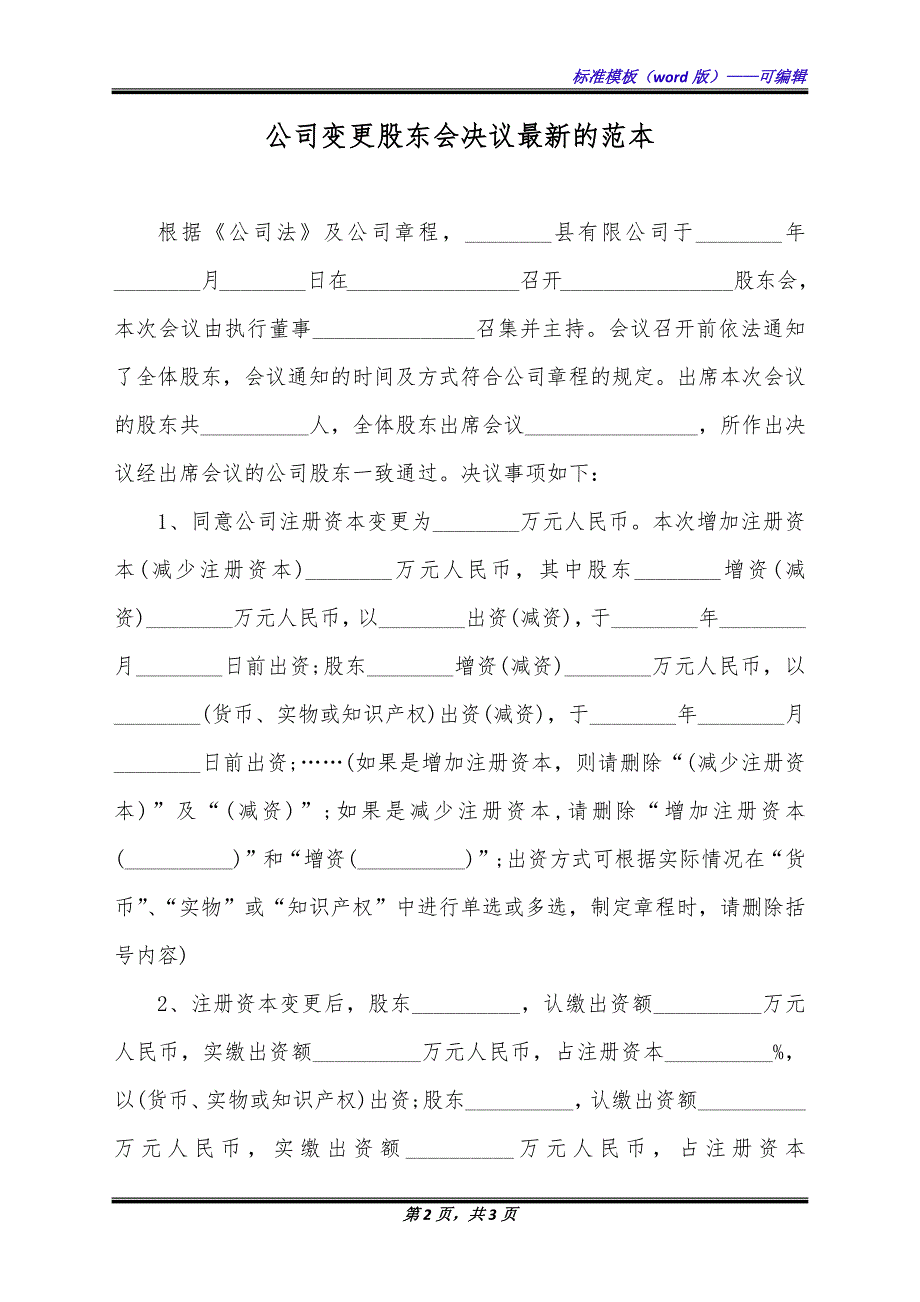 标准模板（word 版）——可编辑
公司变更股东会决议最新的范本
根据《公司法》及公司章程，________县有限公司于________年
________月________日在________________召开________________股东会，
本次会议由执行董事_______________召集并主持。会议召开前依法通知
了全体股东，会议通知的时间及方式符合公司章程的规定。出席本次会议
的股东共__________人，全体股东出席会议________________，所作出决
议经出席会议的公司股东一致通过。决议事项如下：
1、同意公司注册资本变更为________万元人民币。本次增加注册资
本(减少注册资本)________万元人民币，其中股东________增资(减
资)________万元人民币，以________出资(减资)，于________年________
月________日前出资;股东________增资(减资)________万元人民币，以
________(货币、实物或知识产权)出资(减资)，于________年________月
________日前出资;……(如果是增加注册资本，则请删除“(减少注册资
本)”及“(减资)”;如果是减少注册资本,请删除“增加注册资本
(__________)”和“增资(__________)”;出资方式可根据实际情况在“货
币”、“实物”或“知识产权”中进行单选或多选，制定章程时，请删除括
号内容)
2、注册资本变更后，股东__________，认缴出资额__________万元
人民币，实缴出资额__________万元人民币，占注册资本__________%，
以(货币、实物或知识产权)出资;股东__________，认缴出资额__________
万元人民币，实缴出资额__________万元人民币，占注册资本
第 2 页，共 3 页